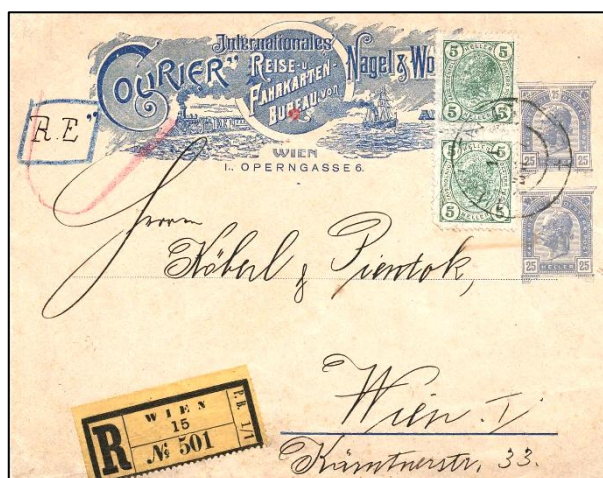 Internationales
"COURIER"
REISE-u.
FAHRKARTEN-
BUREAU von
Nagel &
WIEN
I., OPERNGASSE 6.
R.E
5 5
HELLER
5 5
5 5
HELLER
5 5
25
25 HELLER 25
25
25 HELLER 25
Herrn
Köberl & Pientok,
Wien I,
Kärntnerstr. 33.
R
WIEN
15
№ 501